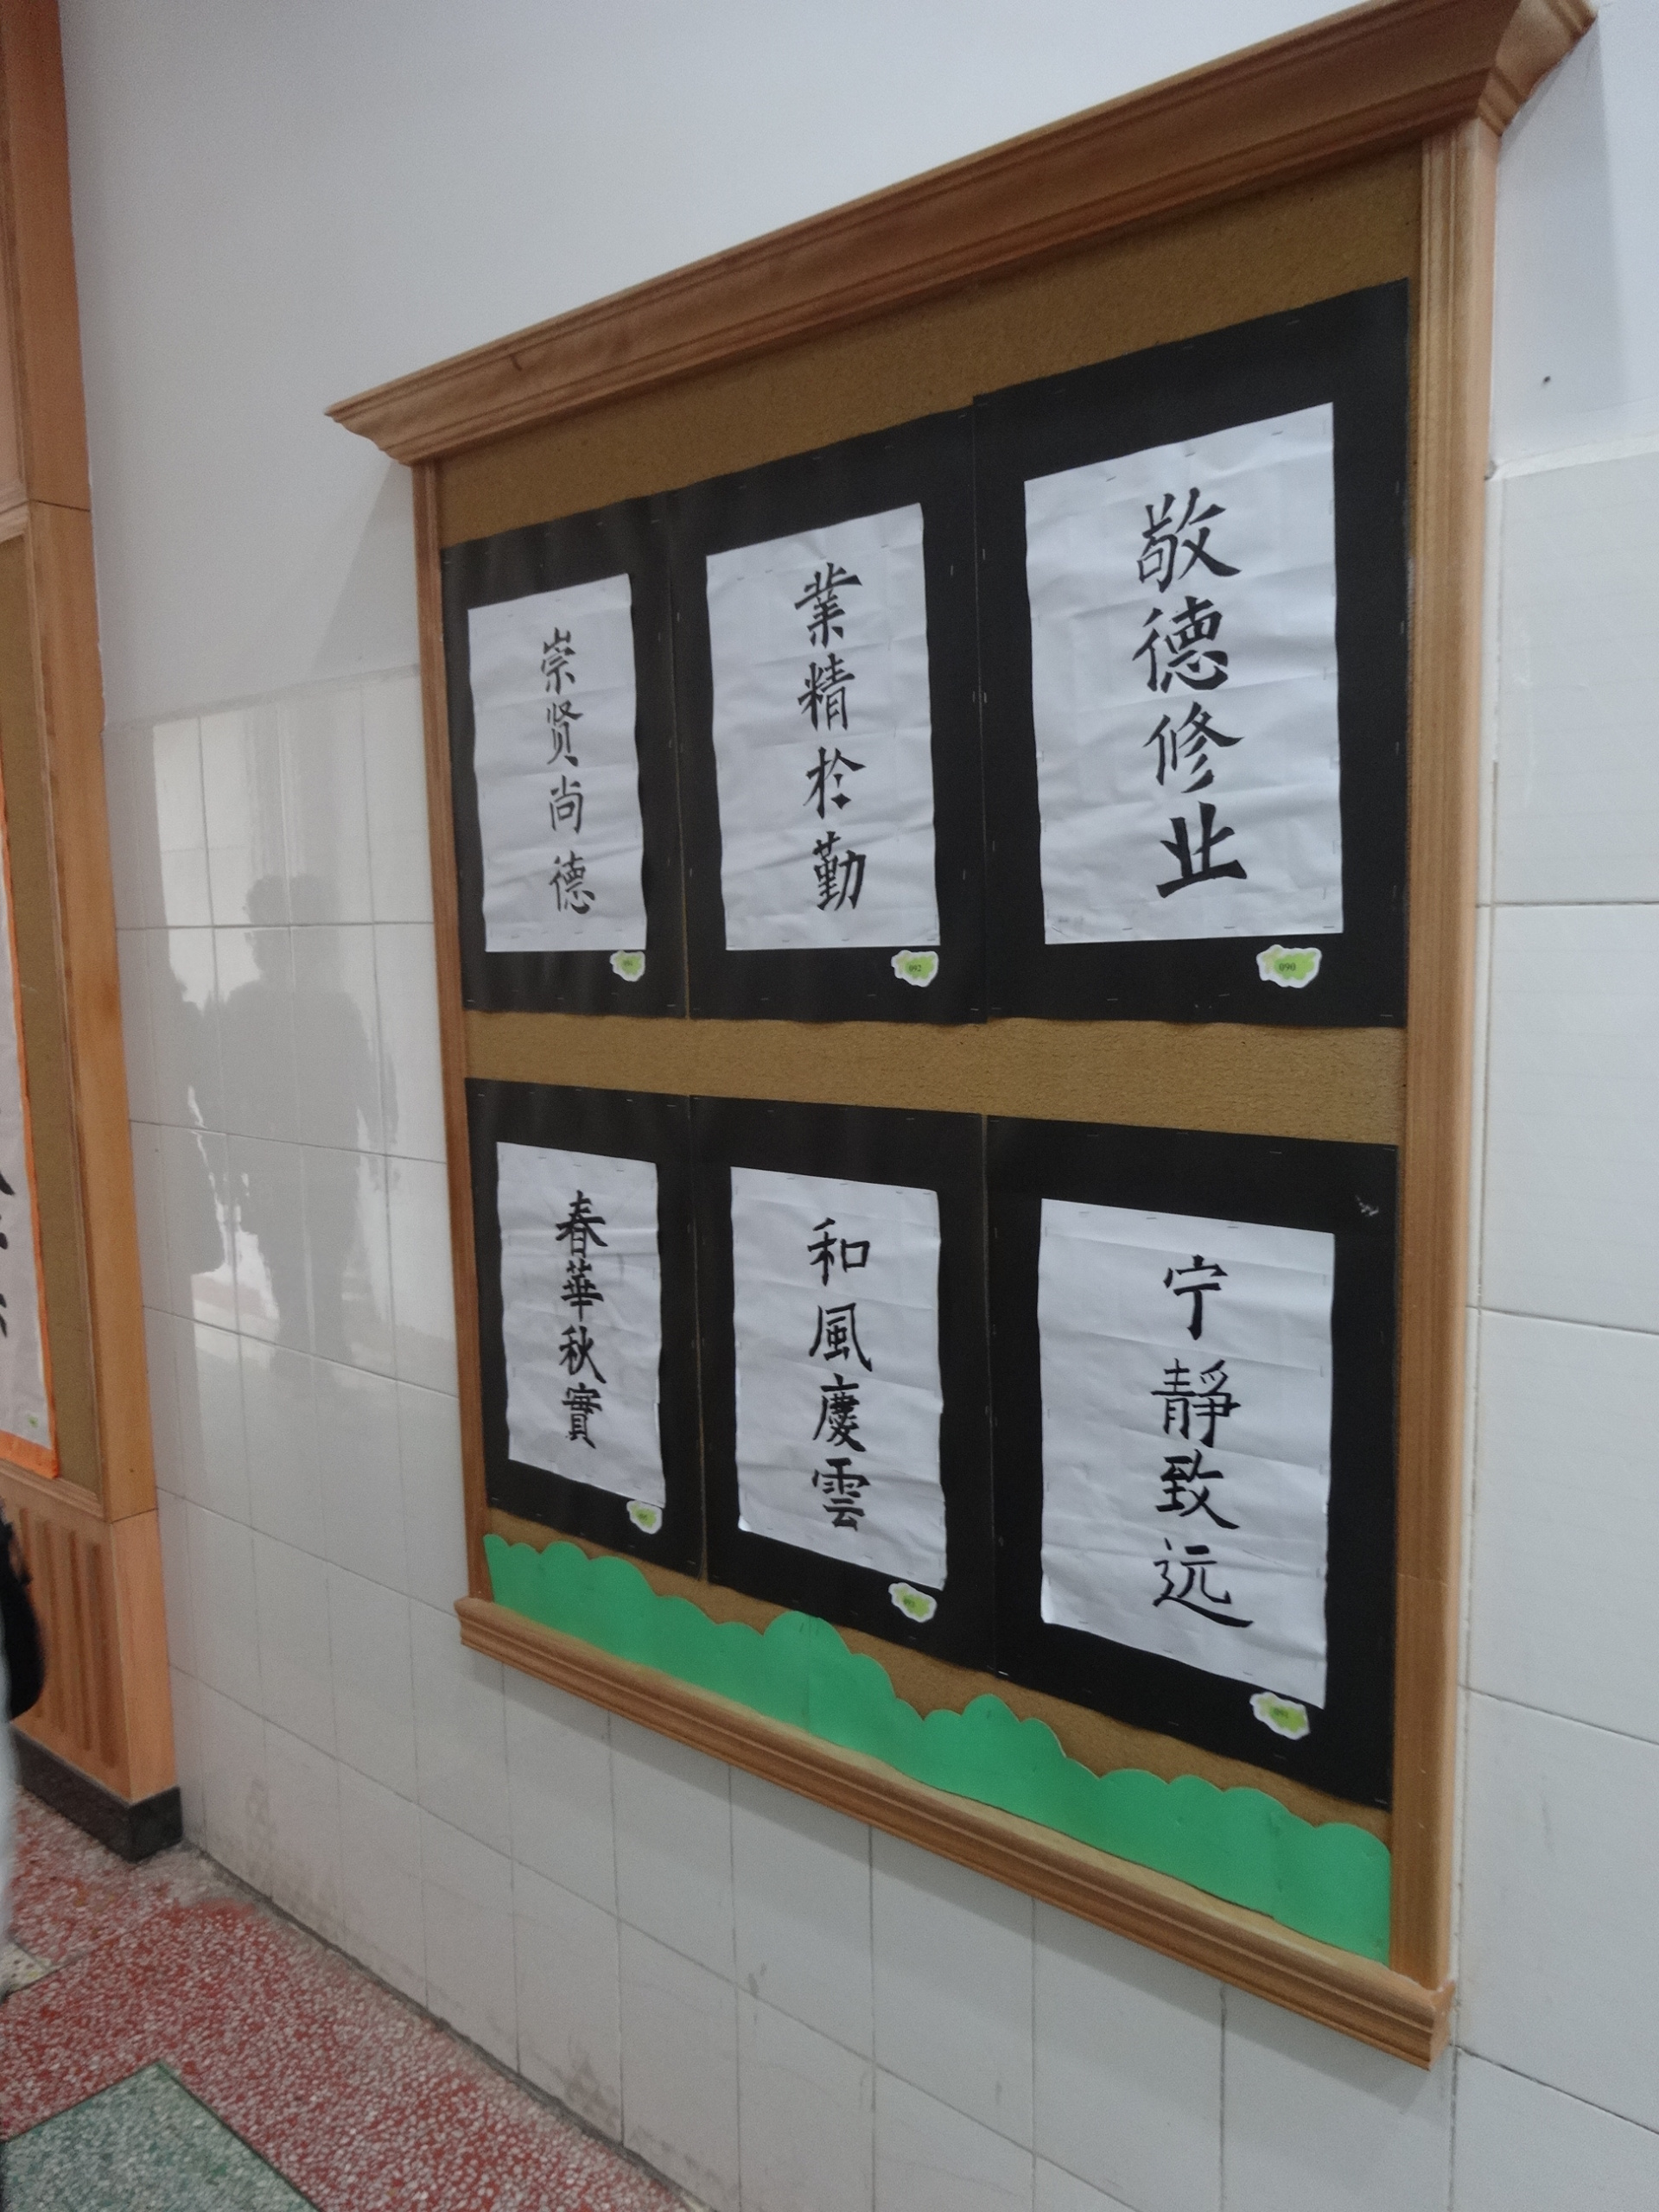 崇贤尚德
業精於勤
敬德修止
092
090
春華秋實
和風慶雲
宁靜致远